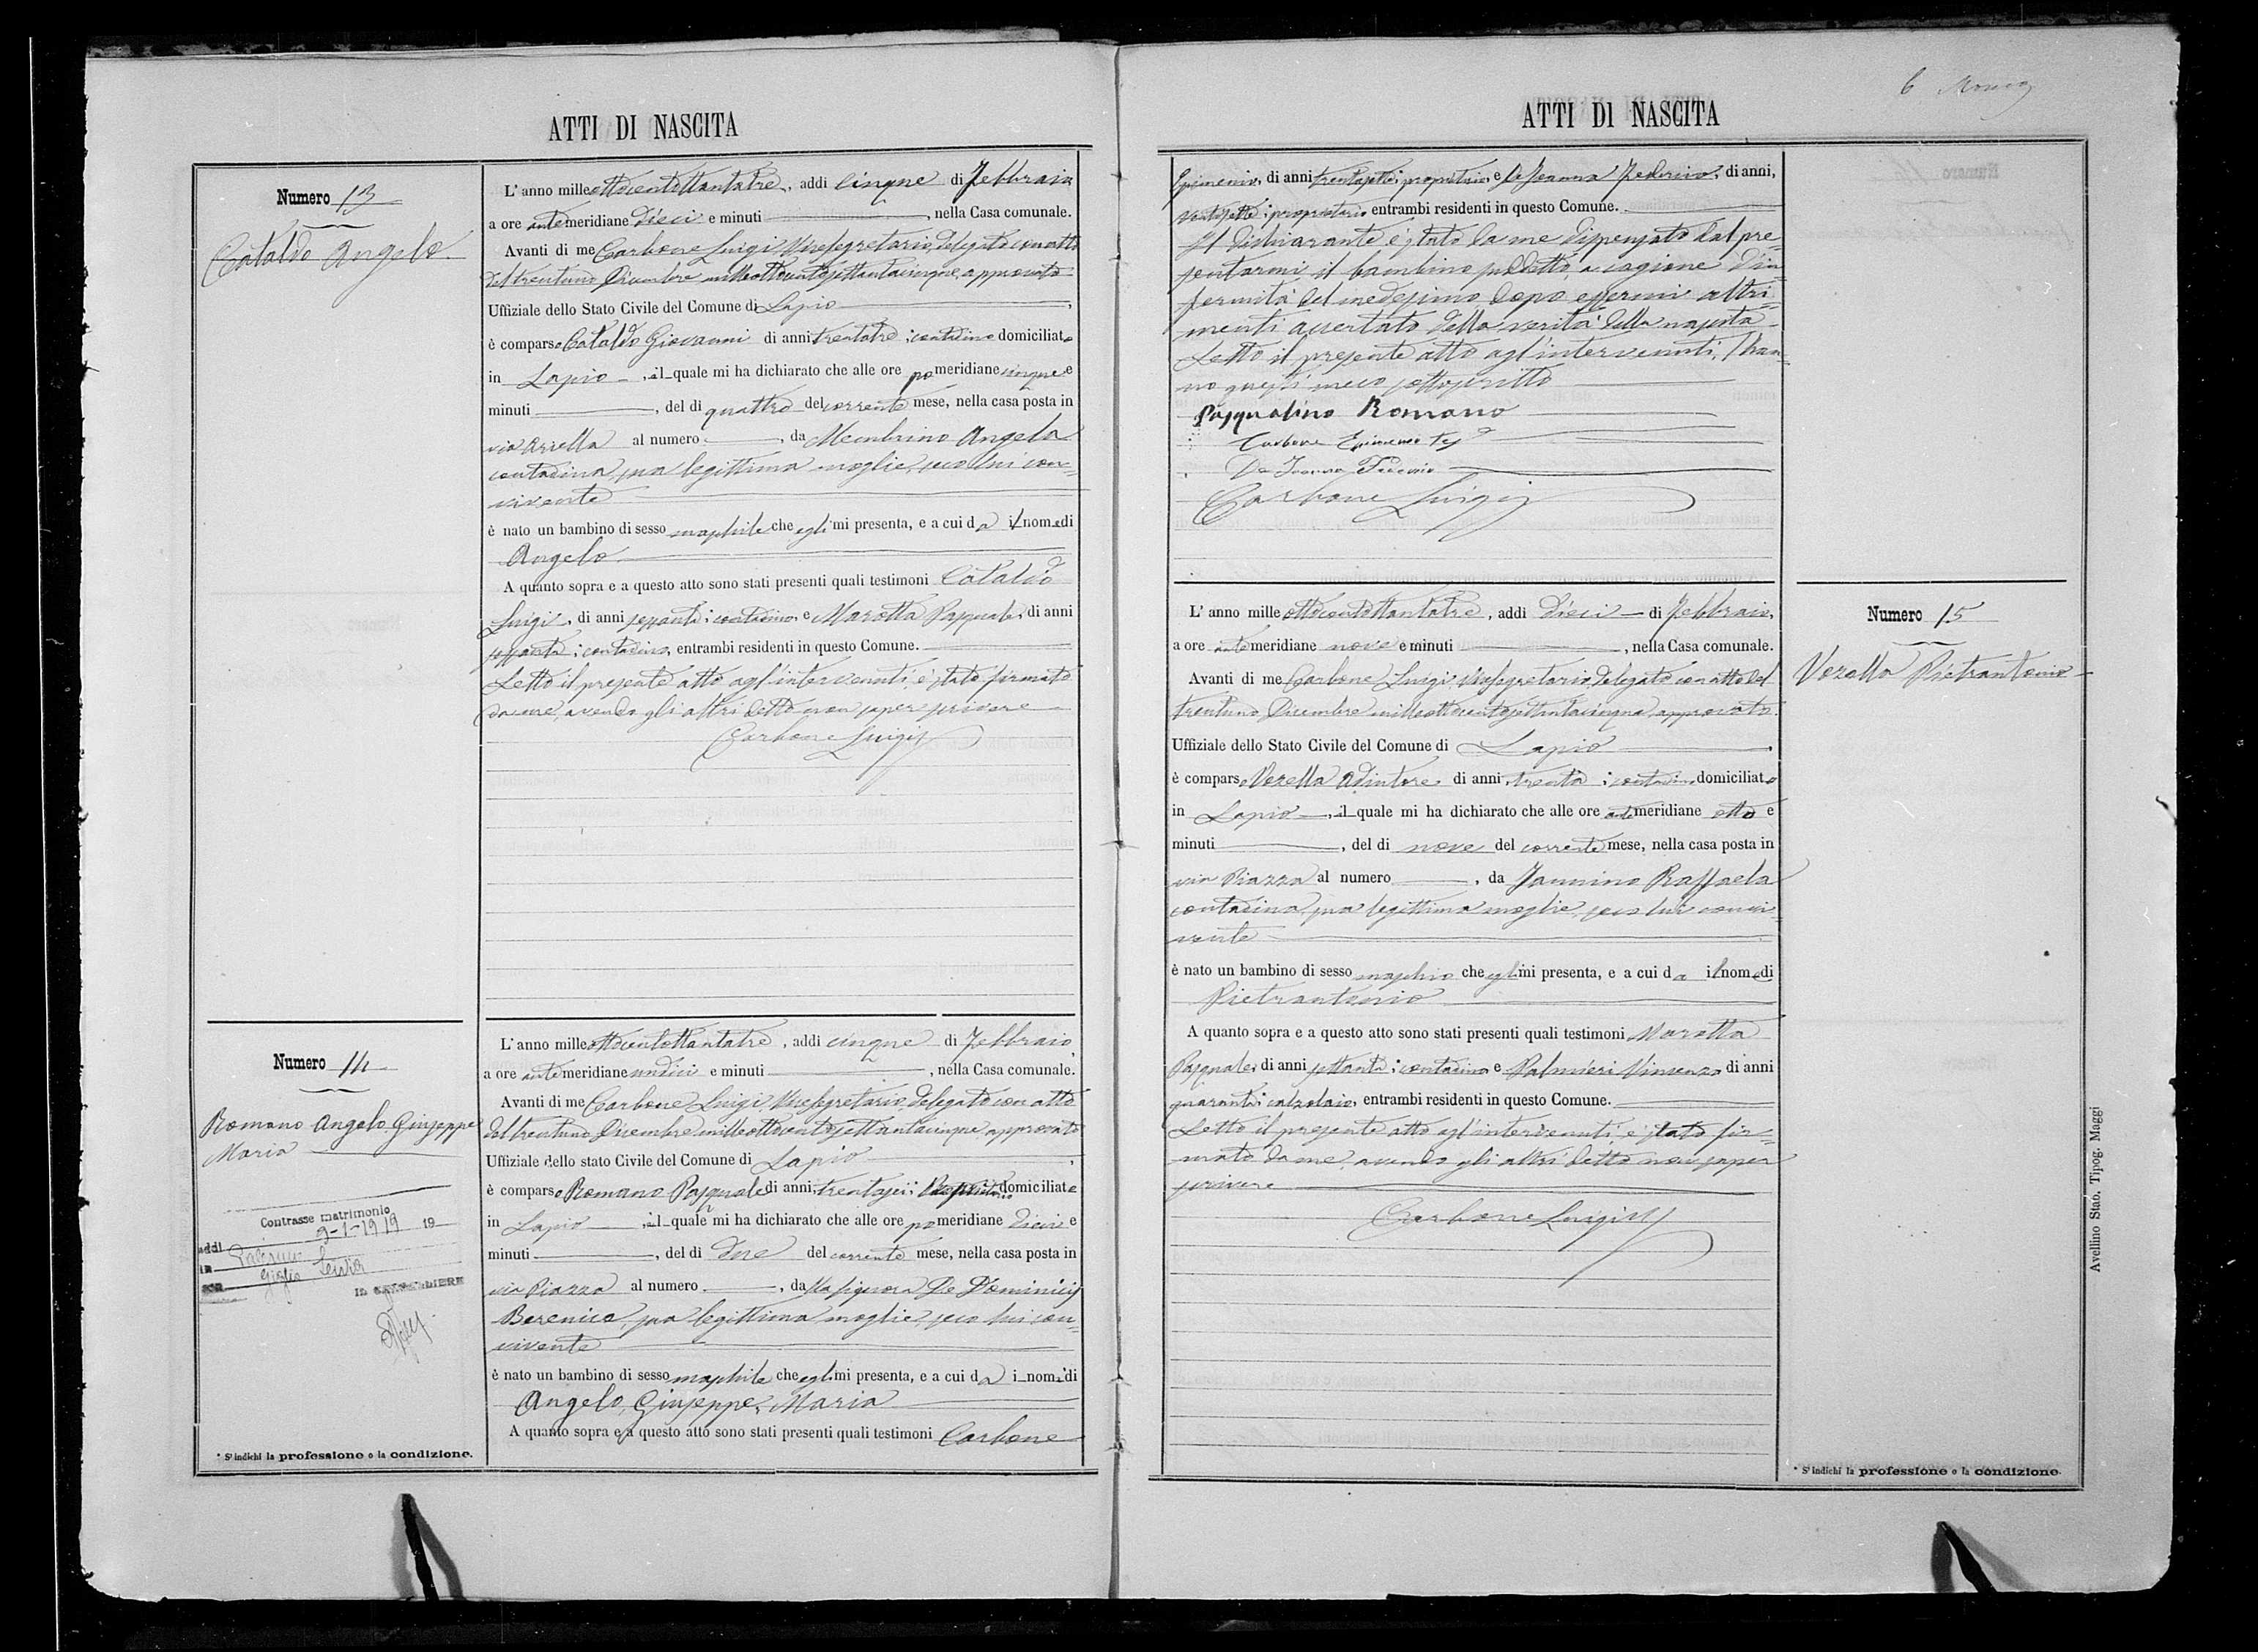 ATTI DI NASCITA
Numero 13
Cataldo Angelo
L'anno mille ottocentottantatre, addì cinque di Febbraio
a ore antemeridiane dieci e minuti, nella Casa comunale.
Avanti di me Carbone Luigi Vicesegretario, delegato con atto
del trentuno Dicembre milleottocentosettantacinque, approvato
Uffiziale dello Stato Civile del Comune di Lapio
è comparso Cataldo Giovanni di anni trentatre; contadino domiciliato
in Lapio, il quale mi ha dichiarato che alle ore pomeridiane cinque e
minuti, del dì quattro del corrente mese, nella casa posta in
via Ariella al numero, da Membrino Angela
contadina, sua legittima moglie, seco lui con-
vivente
è nato un bambino di sesso maschile che egli mi presenta, e a cui dà il nome di
Angelo
A quanto sopra e a questo atto sono stati presenti quali testimoni Cataldo
Luigi, di anni sessanta; contadino, e Marotta Pasquale, di anni
contadino, entrambi residenti in questo Comune.
Letto il presente atto agl'intervenuti, è stato firmato
da me, avendo gli altri detto non saper scrivere
Carbone Luigi
Numero 14
Romano Angelo, Giuseppe
Maria
Contrasse matrimonio
addì 9-1-1919 19
in Palermo
con Giglio
IL CANCELLIERE
L'anno mille ottocentottantatre, addì cinque di Febbraio,
a ore antemeridiane undici e minuti, nella Casa comunale.
Avanti di me Carbone Luigi, Vicesegretario, delegato con atto
del trentuno Dicembre milleottocentosettantacinque, approvato
Uffiziale dello stato Civile del Comune di Lapio
è comparso Romano Pasquale di anni trentasei; Proprietario domiciliato
in Lapio, il quale mi ha dichiarato che alle ore pomeridiane dieci e
minuti, del dì due del corrente mese, nella casa posta in
via Piazza al numero, dalla signora De Dominicis
Berenice, sua legittima moglie, seco lui con-
vivente
è nato un bambino di sesso maschile che egli mi presenta, e a cui dà i nomi di
Angelo, Giuseppe, Maria
A quanto sopra e a questo atto sono stati presenti quali testimoni Carbone
* S'indichi la professione o la condizione.
6
ATTI DI NASCITA
Epimenio, di anni trentasette; proprietario, e De Joanna Federico, di anni,
ventisette; proprietario entrambi residenti in questo Comune.
Il dichiarante è stato da me dispensato dal pre-
sentarmi il bambino suddetto a cagione d'in-
fermità del medesimo dopo essermi altri-
menti accertato della verità della nascita
Letto il presente atto agl'intervenuti, l'han-
no questi meco sottoscritto
Pasqualino Romano
Carbone Epimenio Tes°
De Joanna Federico
Carbone Luigi
L'anno mille ottocentottantatre, addì dieci di Febbraio,
a ore antemeridiane nove e minuti, nella Casa comunale.
Avanti di me Carbone Luigi, Vicesegretario, delegato con atto del
trentuno Dicembre milleottocentosettantacinque, approvato.
Uffiziale dello Stato Civile del Comune di Lapio
è comparso Vozella Adintore di anni trenta; contadino domiciliato
in Lapio, il quale mi ha dichiarato che alle ore antemeridiane otto e
minuti, del dì nove del corrente mese, nella casa posta in
via Piazza al numero, da Jannino Raffaela
contadina, sua legittima moglie, seco lui convi-
vente
è nato un bambino di sesso maschio che egli mi presenta, e a cui dà il nome di
Pietrantonio
A quanto sopra e a questo atto sono stati presenti quali testimoni Marotta
Pasquale, di anni settanta; contadino e Palmieri Vincenzo di anni
quaranta; calzolaio, entrambi residenti in questo Comune.
Letto il presente atto agl'intervenuti, è stato fir-
mato da me, avendo gli altri detto non saper
scrivere
Carbone Luigi
Numero 15
Vozella Pietrantonio
* S'indichi la professione o la condizione.
Avellino Stab. Tipog. Maggi